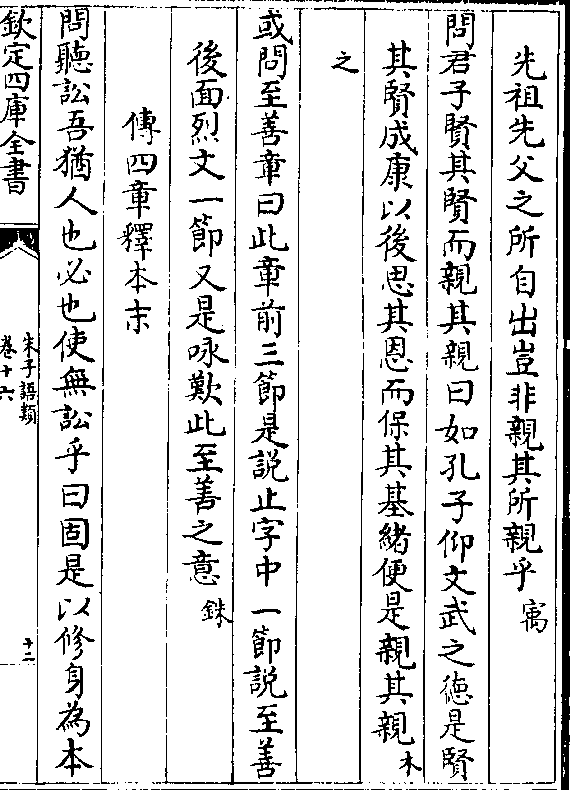 先祖先父之所自出豈非親其所親乎寓
問君子賢其賢而親其親曰如孔子仰文武之徳是賢
其賢成康以後思其恩而保其基緒便是親其親木
之
或問至善章曰此章前三節是説止字中一節説至善
後面烈文一節又是咏歎此至善之意銖
傳四章釋本末
問聽訟吾猶人也必也使無訟乎曰固是以修身為本
欽定四庫全書
朱子語類
卷十六
十二